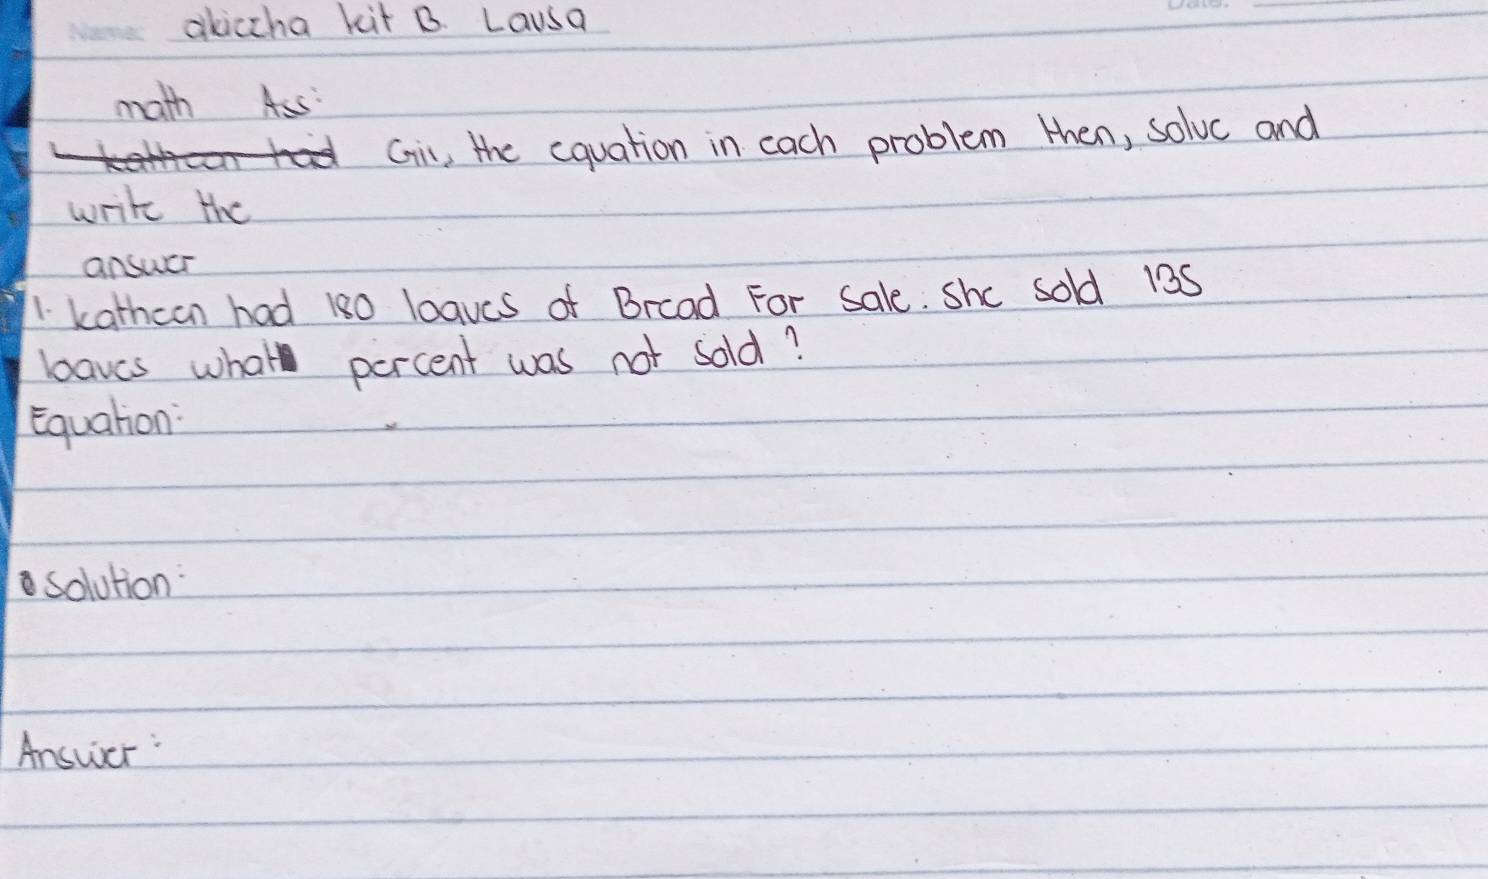 Name: akiccha kit B. Lausa
Date:
math Ass:
1. kathcen had Giv, the equation in each problem then, solve and
write the
answer
1. kathcen had 180 loaves of Bread For Sale. She sold 135
loaves what percent was not sold?
Equation:
Solution:
Answer: